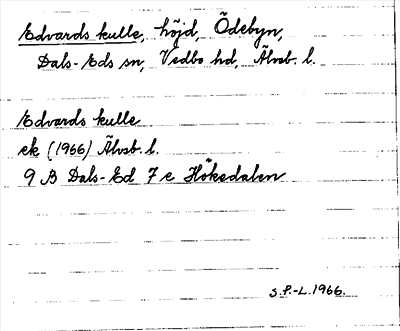 Edvards kulle, höjd, Ödebyn,
Dals-Eds sn, Vedbo hd, Älvsb. l.
Edvards kulle
ek (1966) Älvsb. l.
9 B Dals-Ed 7 e Hökedalen
S.P.-L. 1966.